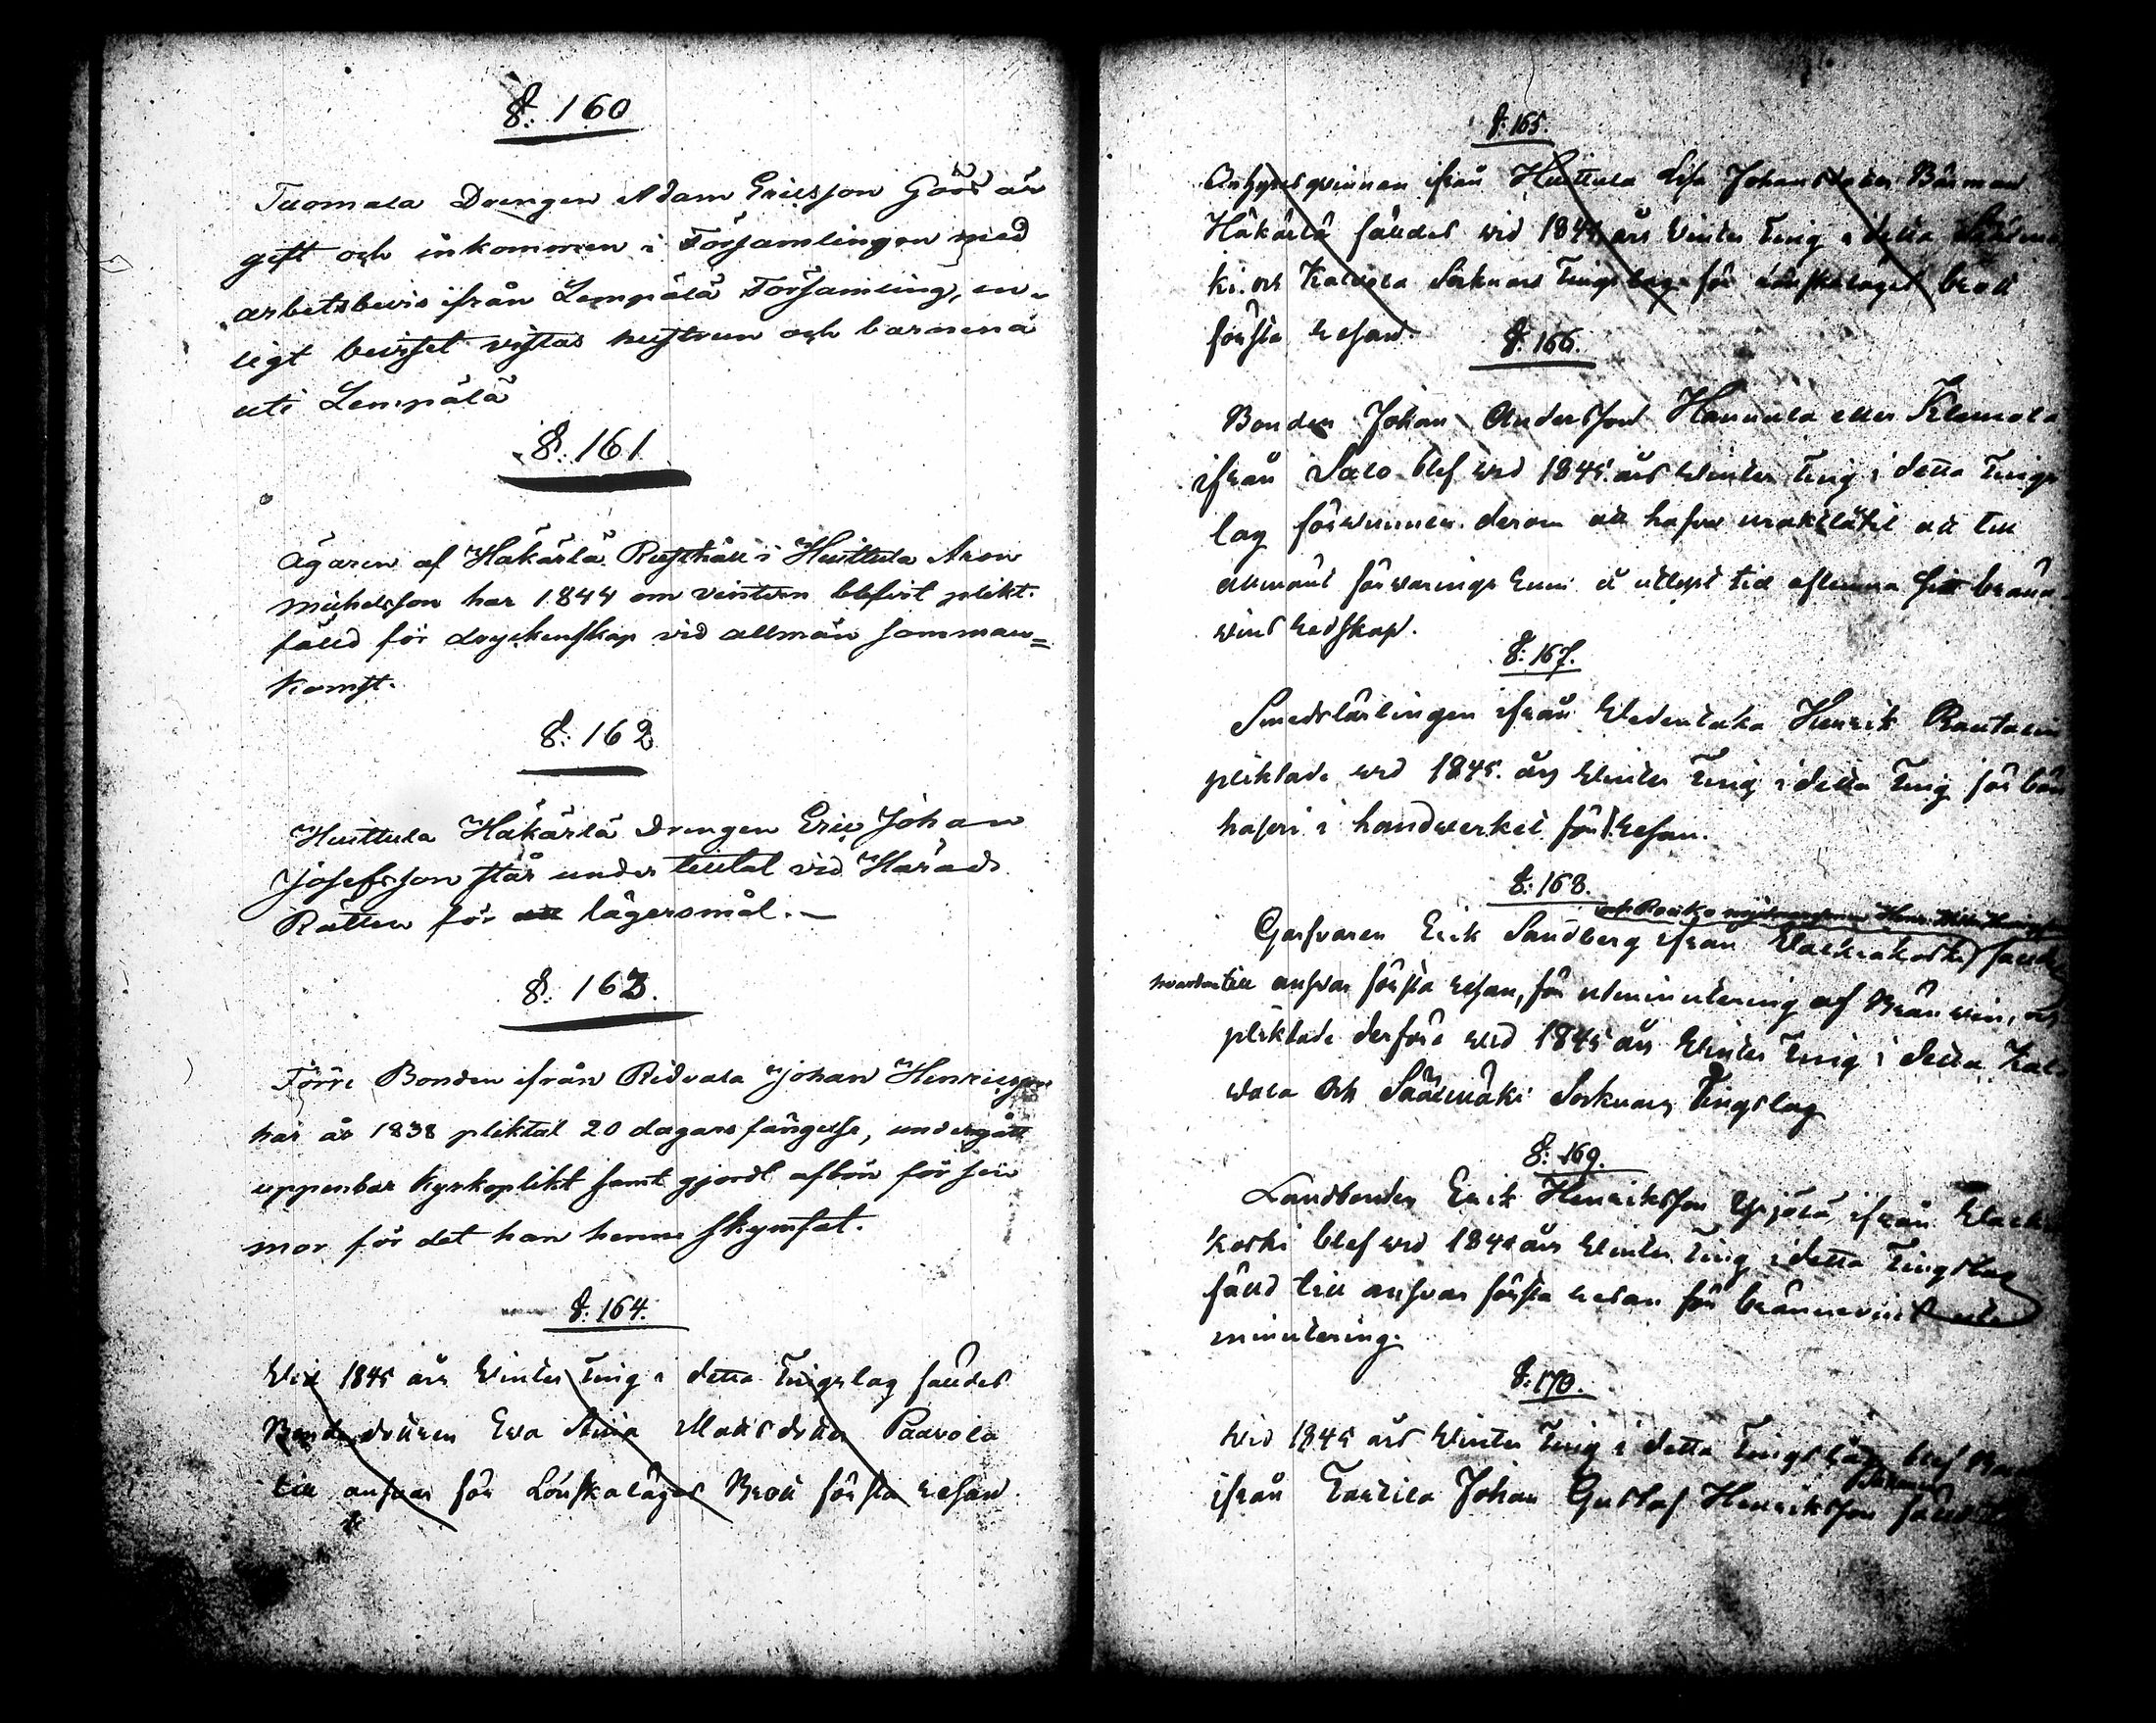 §. 160
Tuomala Drengen Adam Ericsson Göös är
gift och inkommen i Församlingen med
arbetsbevis ifrån Lempälä Församling, en-
ligt beviset vistas hustrun och barnena
uti Lempälä
§. 161
Ägaren af Hakärlä Rusthåll i Huittula Aron
Michelsson har 1844 om vintern blefvit plikt-
fälld för dryckenskap vid allmän samman=
komst.
§. 162
Huittula Hakärlä Drengen Eric Johan
Josefsson står under tilltal vid Härads
Rätten för lägersmål.
§. 163.
Förre Bonden ifrån Ridvala Johan Henricsson
har år 1838 pliktat 20 dagars fängelse, undergått
uppenbar Kyrkoplikt samt gjordt afbön för sin
mor för det han henne skymfat.
§. 164.
Wid 1845 års Winter Ting i detta Tingslag fälldes
Bondedottren Eva Stina Mattsdotter Paavola
till answar för Lönskaläges Brott första resan
§. 165.
Inhyses qvinnan ifrån Huittula Lisa Johansdotter Bärman
Hakärlä fälldes wid 1844 års Winter Ting i detta Sääxmä
ki och Kalvola Soknars Tingslag för Lönskaläges brott
första resan.
§. 166.
Bonden Johan Andersson Hannula eller Klemola
ifrån Salo blef wid 1845 års Winter Ting i detta Tings
lag förwunnen derom att hafva uraktlåtit att till
allmänt förwarings rum å utlyst tid aflemna sitt bränn
wins redskap.
§. 167.
Smedslärlingen ifrån Wedentaka Henrik
pliktade wid 1845 års Winter Ting i detta Ting för bön
hasen i handwerket förs. resan.
§. 168.
Garfvaren Erik Sandberg ifrån Walkiakoski fälldes
till answar första resan, för utminutering af Bränwin, och
pliktade derföre wid 1845 års Winter Ting i detta Kal
wola och Sääxmäki Soknars Tingslag
§. 169.
Landbonden Erik Henriksson Yrjölä, ifrån Walkia
koski blef wid 1845 års Winter Ting i detta Tingslag
fälld till answar första resan för brännevins ut
minutering.
§. 170.
Wid 1845 års Winter Ting i detta Tingslag blef
ifrån Tarttila Johan Gustaf Henriksson fälld